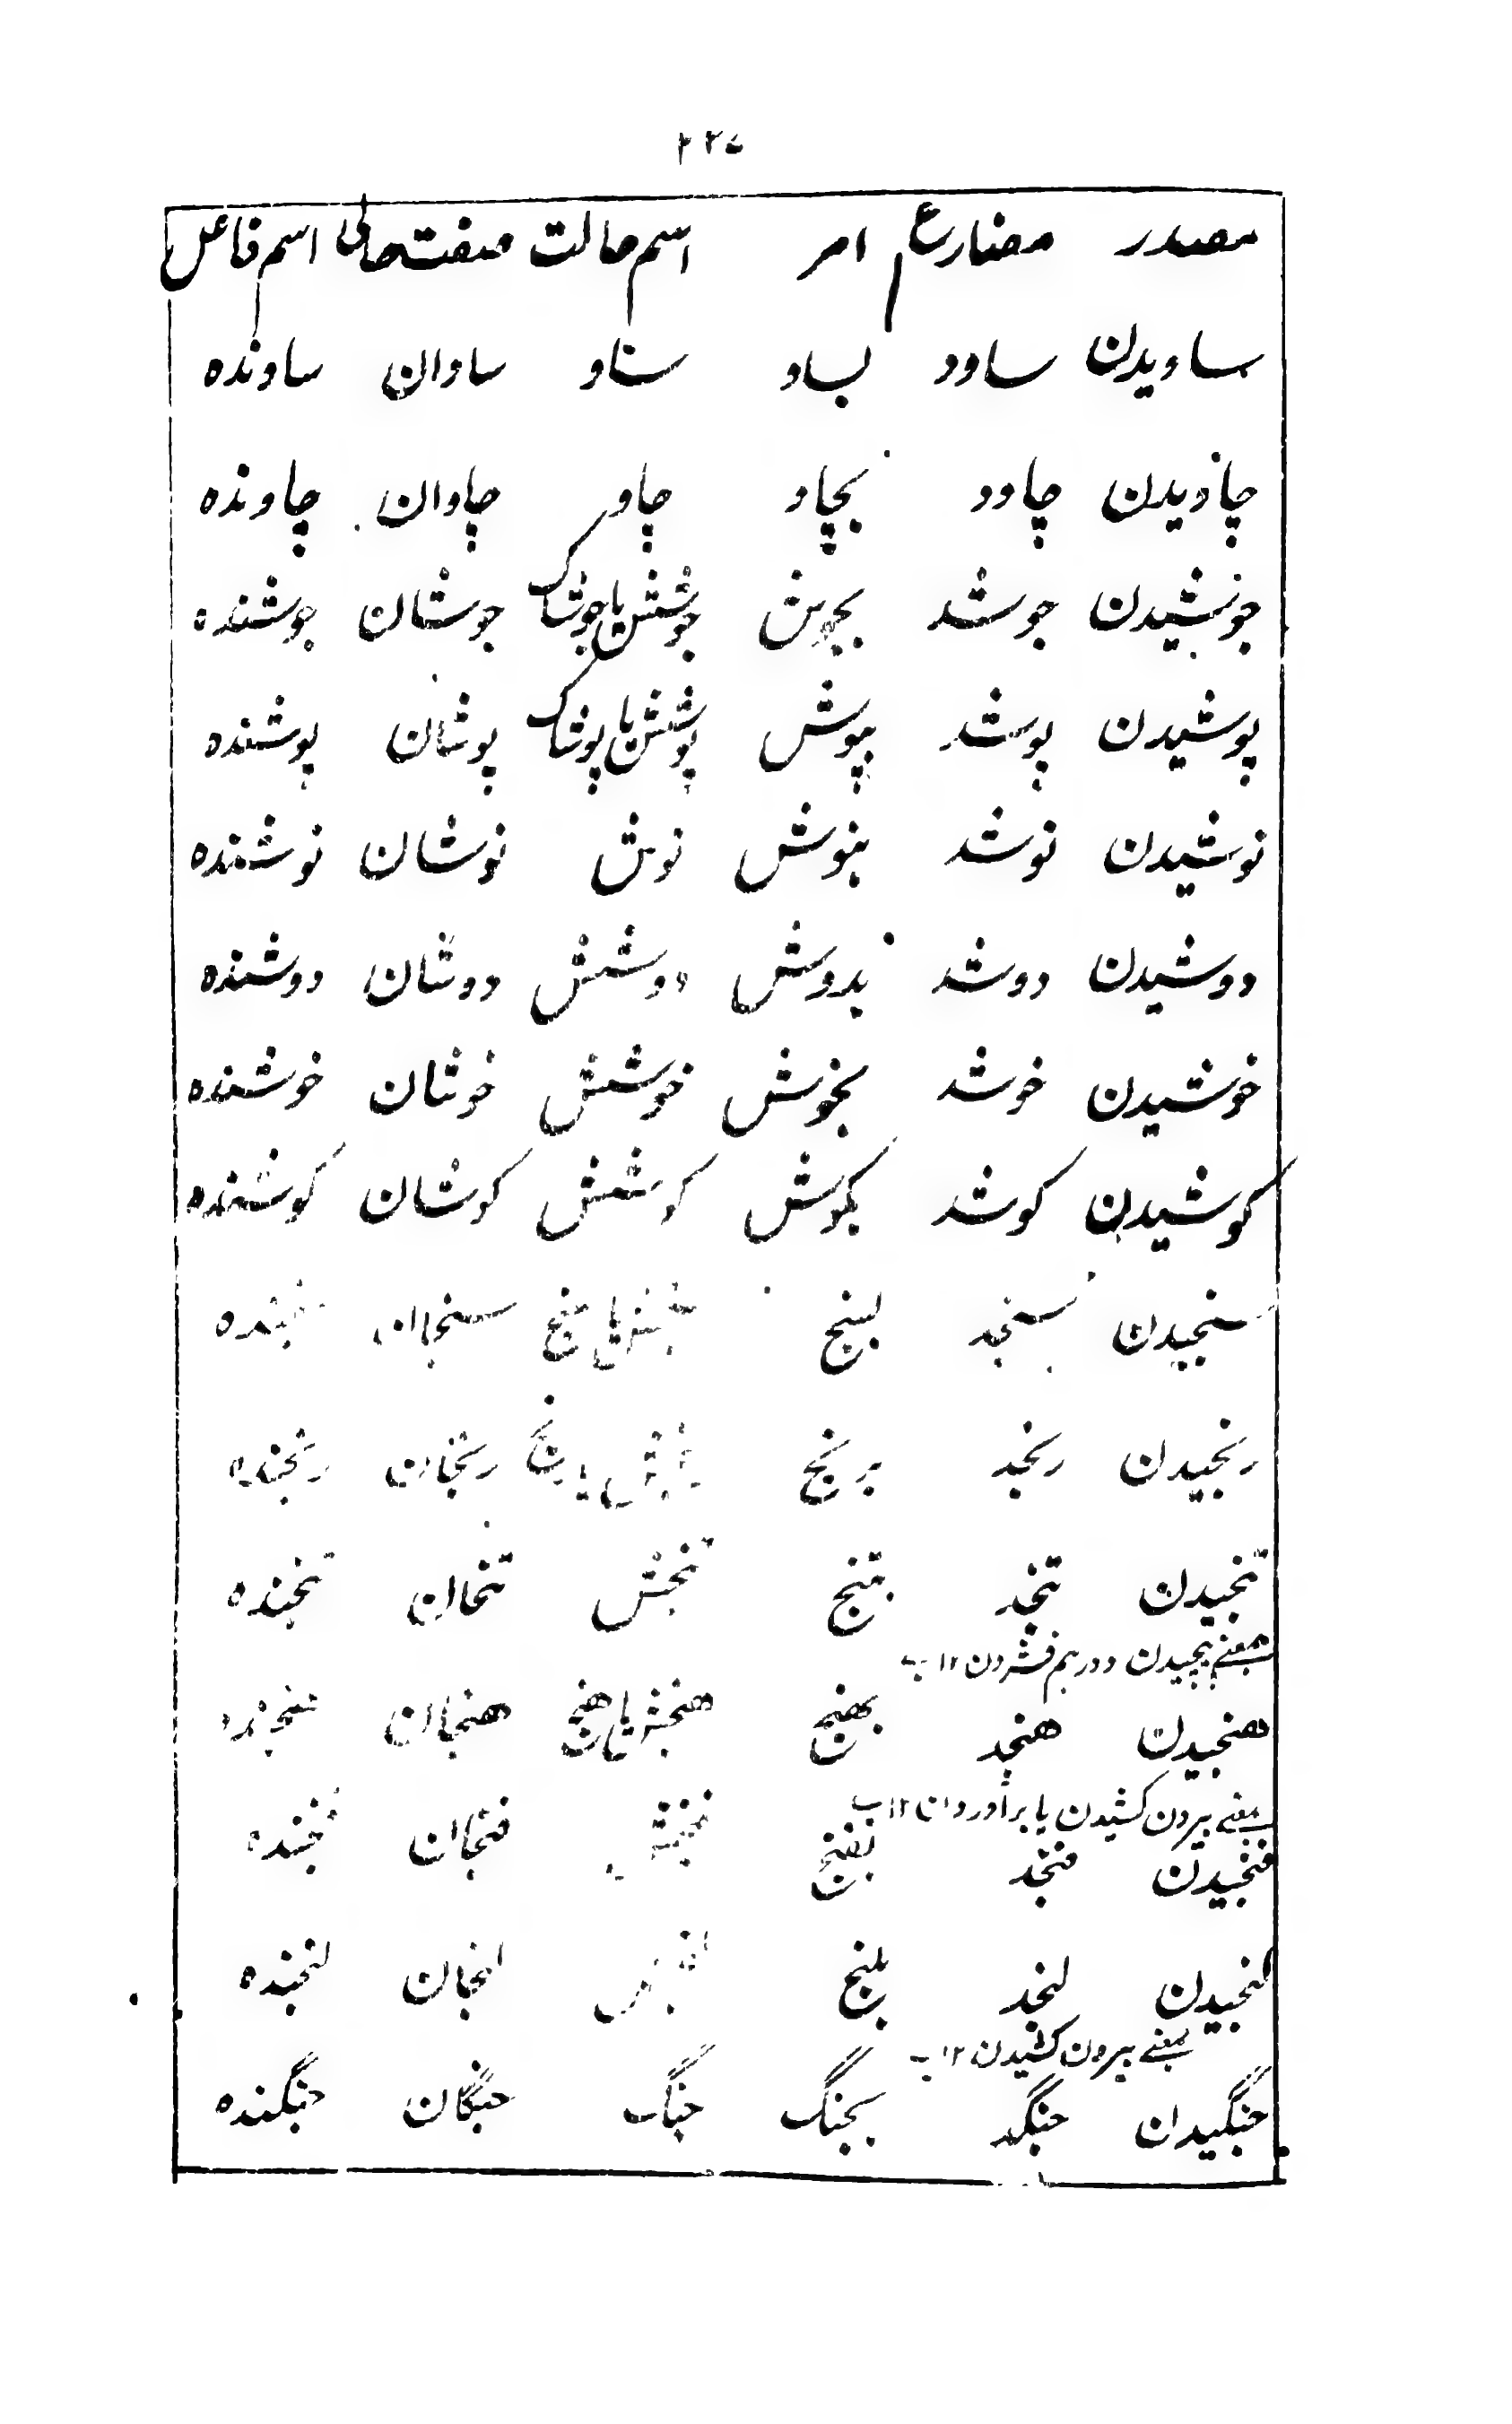 ۲۲۷
مصدر مضارع امر اسم حالت صفت حالی اسم فاعل
ساویدن ساود بساو ساو ساوان ساونده
چاویدن چاود بچاو چاو چاوان چاونده
جوشیدن جوشد بجوش جوشش یا جوشاک جوشان جوشنده
پوشیدن پوشد بپوش پوشش یا پوشاک پوشان پوشنده
نوشیدن نوشد بنوش نوش نوشان نوشنده
دوشیدن دوشد بدوش دوشش دوشان دوشنده
خوشیدن خوشد بخوش خوشش خوشان خوشنده
کوشیدن کوشد بکوش کوشش کوشان کوشنده
سنجیدن سنجد بسنج سنجش یا سنج سنجان سنجنده
رنجیدن رنجد برنج رنجش یا رنج رنجان رنجنده
تنجیدن تنجد بتنج تنجش تنجان تنجنده
بمعنے پیچیدن و درہم فشردن ۱۲ ب
هنجیدن هنجد بهنج هنجش یا هنج هنجان هنجنده
بمعنے بیرون کشیدن یا برآوردن ۱۲ ب
فنجیدن فنجد بفنج فنجش فنجان فنجنده
لنجیدن لنجد بلنج لنجان لنجنده
بمعنے بیرون کشیدن ۱۲ ب
جنگیدن جنگد بجنگ جنگ جنگان جنگنده